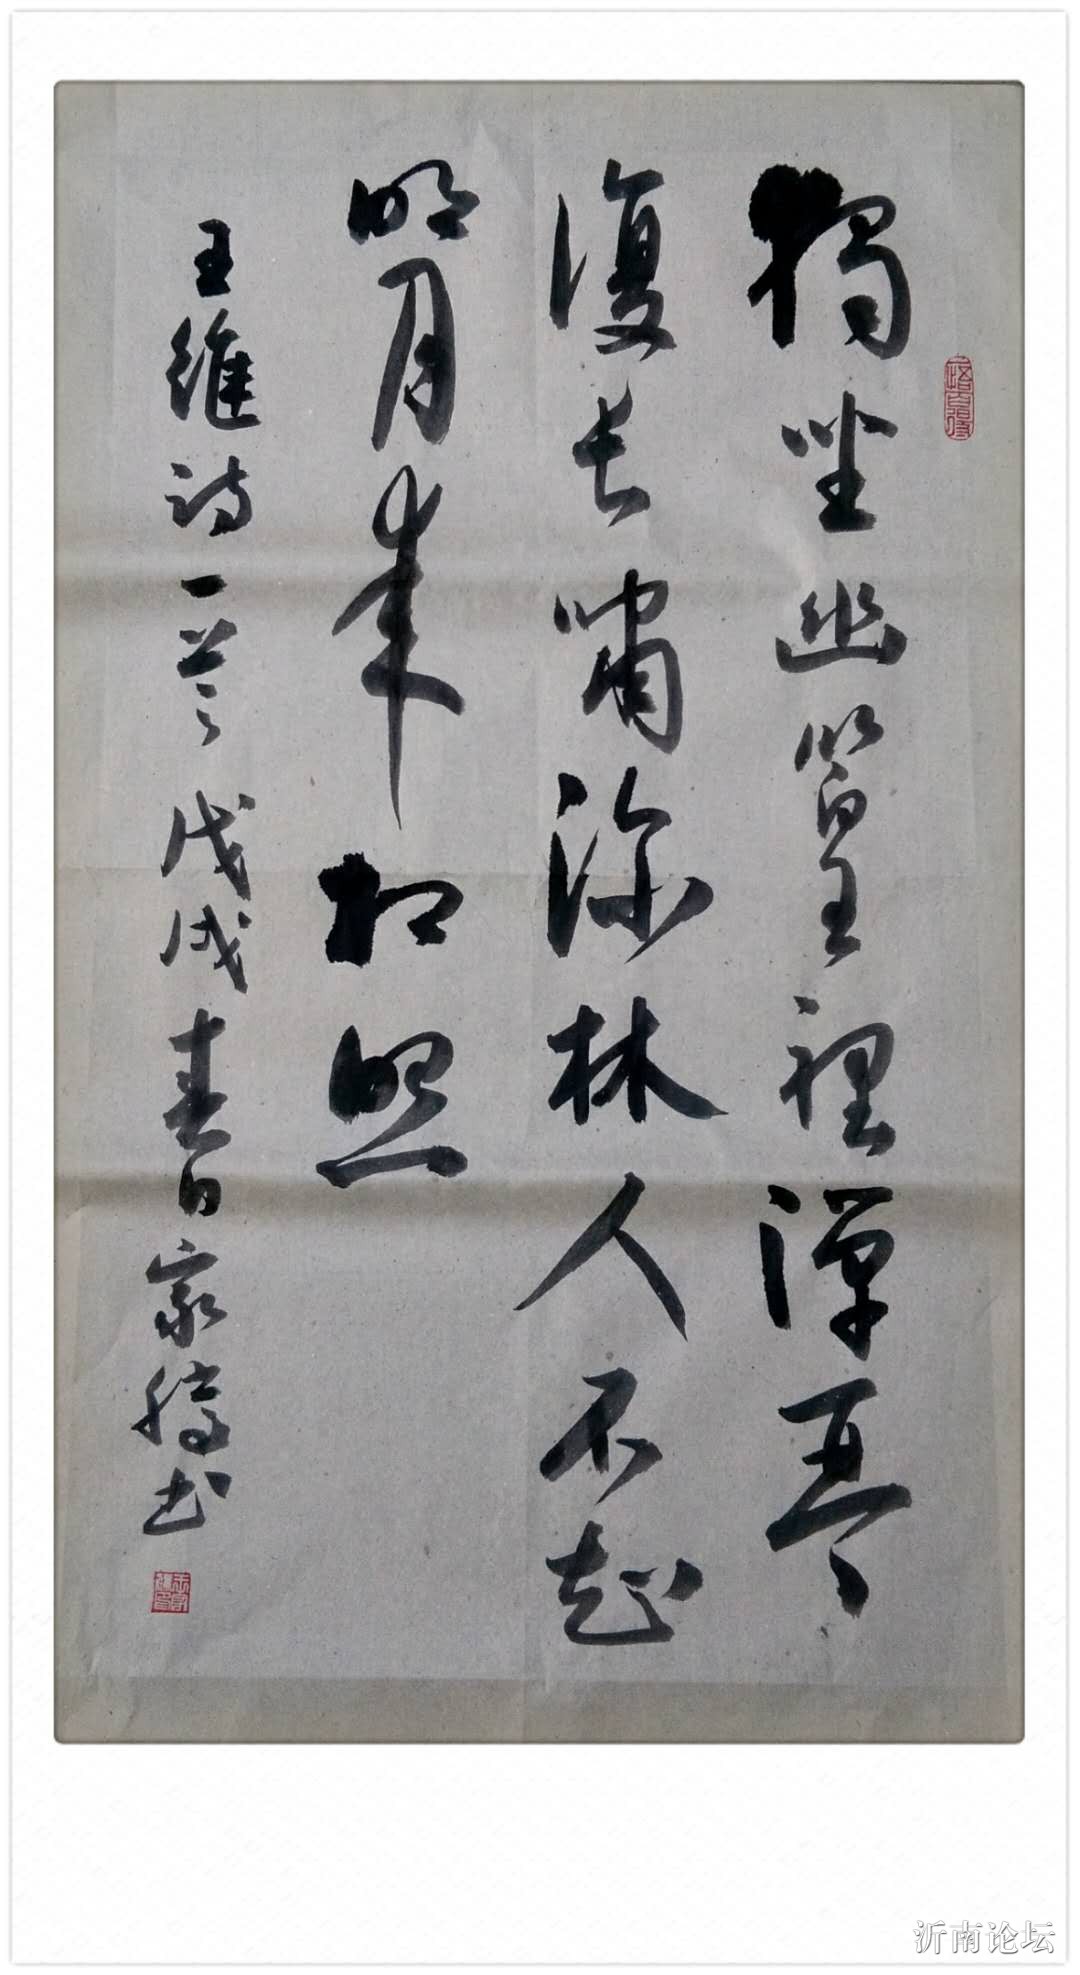 獨坐幽篁裡彈琴
復長嘯深林人不知
明月来相照
王維詩一首戊戌春日家騰书
沂南论坛